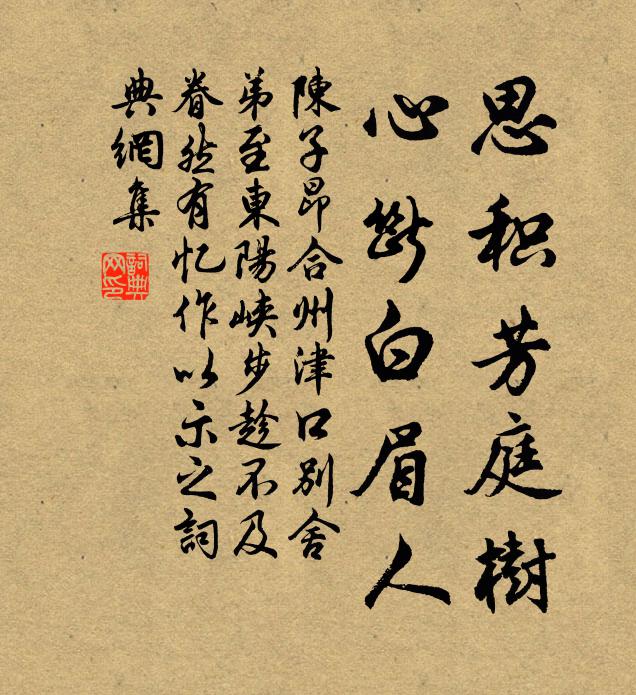 思积芳庭樹
心斷白眉人
陳子昂合州津口別舍
弟至東陽峽步趁不及
眷然有忆作以示之詞
典網集
詞典
网印